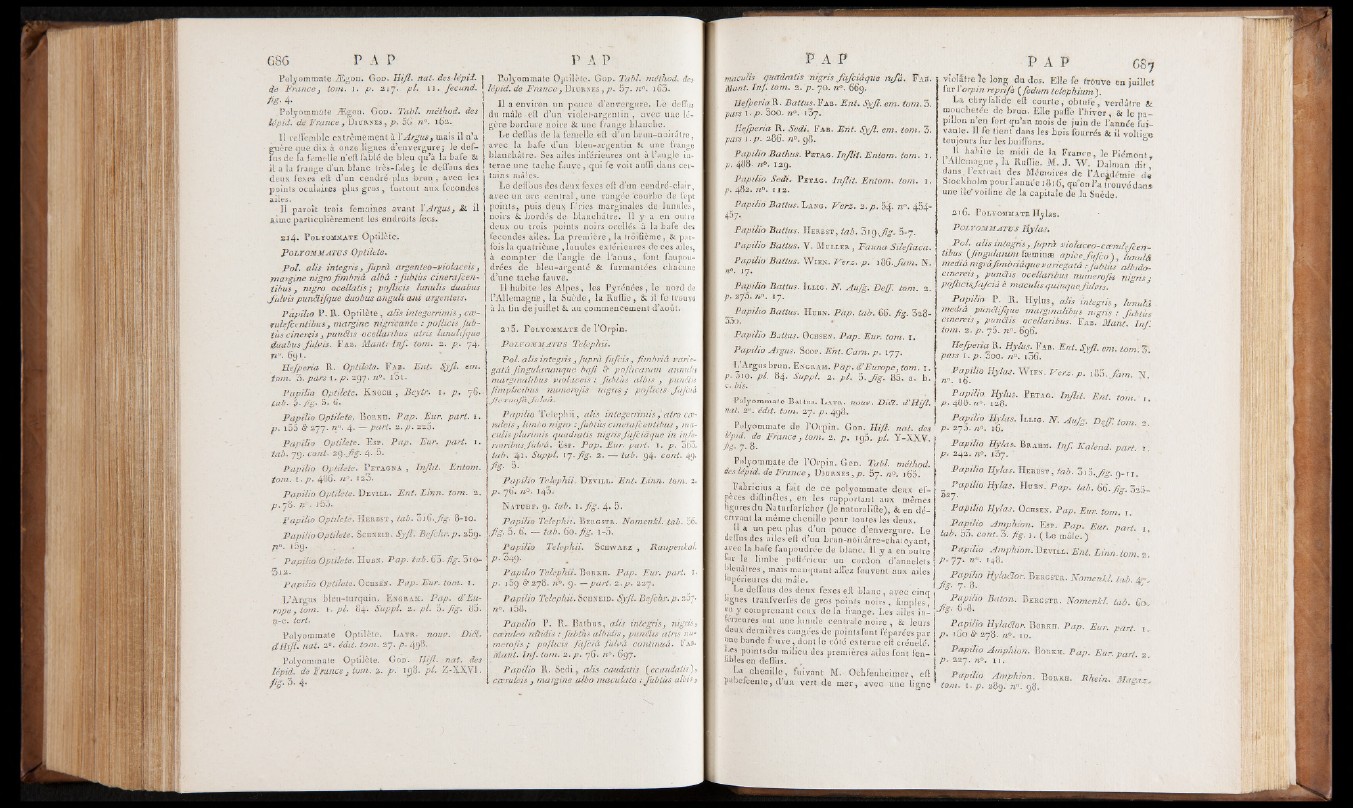 686 P A P
Polyommate Ægon. God. Hist. nat. des lépid.
de France, tom. 1. p. 217. pl. 11. secund.
fig. 4.
Polyommate Ægon. God. Tabl. méthod. des
lépid. de France, Diurnes, p. 56. n°. 162.
Il ressemble extrêmement à l'Argus, mais il n'a
guère que dix à onze lignes d'envergure; le des-
sus de la femelle n'est sablé de bleu qu'à la base &
il a la frange d'un blanc très-sale; le dessous des
deux sexes est d'un cendré plus brun, avec les
points oculaires plus gros, surtout aux secondes
ailes.
Il paroît trois semaines avant l'Argus, & il
aime particulièrement les endroits secs.
214. Polyommate Optilète.
Polyommatus Optilete.
Pol. alis integris, suprà argenteo-violaceis,
margine nigro fimbriâ albâ : subtùs cinerascen-
tibus, nigro ocellatis; posticis lunulis duabus
fulvis punctisque duobus anguli ani argenteis.
Papilio P. R. Optilete, alis integerrimis, cæ-
rulescentibus, margine nigricante : posticis sub-
tùs cinereis, punctis ocellaribus atris lunulisque
duabus fulvis. Fab. Mant. Ins. tom. 2. p. 74.
n°. 691.
Hesperia R. Optilete. Fab. Ent. Syst. em.
tom. 3. pars 1. p. 297. n°. 131.
Papilio Optilete. Knoch, Beytr. 1. p. 76.
tab. 5. fig. 5. 6.
Papilio Optilete. Borkh. Pap. Eur. part. 1.
p. 155 & 277. n°. 4. — part. 2. p. 225.
Papilio Optilete. Esp. Pap. Eur. part. 1.
tab. 79. cont. 29. fig. 4. 5.
Papilio Optilete. Petagna, Instit. Entom.
tom. 1. p. 486. n°. 123.
Papilio Optilete. Devill. Ent. Linn. tom. 2.
p. 76. n°.
Papilio Optilete. Herbst, tab. 316. fig. 8-10.
Papilio Optilete. Schneid. Syst. Beschr. p. 259.
n°. 159.
Papilio Optilete. Hubn. Pap. tab. 65. fig. 310-
312.
Papilio Optilete. Ochsen. Pap. Eur. tom. 1.
L'Argus bleu-turquin. Engram. Pap. d'Eu-
rope, tom. 1. pl. 84. Suppl. 2. pl. 5. fig. 85.
a-c. tert.
Polyommate Optilète. Latr. nouv. Dict.
d'Hist. nat. 2e. édit. tom. 27. p. 498.
Polyommate Optilète. God. Hist. nat. des
lépid. de France, tom. 2. p. 198. pl. Z-XXVI.
fig. 3. 4.
P A P
Polyommate Optilète. God. Tabl. méthod. des
lépid. de France, Diurnes, p. 57. n°. 163.
Il a environ un pouce d'envergure. Le dessus
du mâle est d'un violet-argentin, avec une lé-
gère bordure noire & une frange blanche.
Le dessus de la femelle est d'un brun-noirâtre,
avec la base d'un bleu-argentin & une frange
blanchâtre. Ses ailes inférieures ont à l'angle in-
terne une tache fauve, qui se voit aussi dans cer-
tains mâles.
Le dessous des deux sexes est d'un cendré-clair,
avec un arc central, une rangée courbe de sept
points, puis deux séries marginales de lunules,
noirs & bordés de blanchâtre. Il y a en outre
deux ou trois points noirs ocellés à la base des
secondes ailes. La première, la troisième, & par-
fois la quatrième, lunules extérieures de ces ailes,
à compter de l'angle de l'anus, sont saupou-
drées de bleu-argenté & surmontées chacune
d'une tache fauve.
Il habite les Alpes, les Pyrénées, le nord de
l'Allemagne, la Suède, la Russie, & il se trouve
à la fin de juillet & au commencement d'août.
215. Polyommate de l'Orpin.
Polyommatus Telephii.
Pol. alis integris, suprà fuscis, fimbriâ varie-
gatâ singularumque basi & posticarum annulis
marginalibus violaceis : subtùs albis, punctis
simplicibus numerosis nigris; posticis fasciâ
flexuosâ fulvâ.
Papilio Telephii, alis integerrimis, atra cæ-
ruleis, limbo nigro : subtùs cinerascentibus, ma-
culis plurimis quadratis nigris fasciâque in infe-
rioribus fulvâ. Esp. Pap. Eur. part. 1. p. 363.
tab. 41. Suppl. 17. fig. 2. — tab. 94. cont. 49.
fig. 5.
Papilio Telephii. Devill. Ent. Linn. tom. 2.
p. 76. n°. 145.
Naturf. 9. tab. 1. fig. 4. 5.
Papilio Telephii. Bergstr. Nomenkl. tab. 56.
fig. 5. 6. — tab. 60. fig. 1-5.
Papilio Telephii. Schwarz, Raupenkal.
p. 349.
Papilio Telephii. Borkh. Pap. Eur. part. 1.
p. 159 & 278. n°. 9. — part. 2. p. 227.
Papilio Telephii. Schneid. Syst. Beschr. p. 257.
n°. 158.
Papilio P. R. Battus, alis integris, nigris,
cæruleo nitidis : subtùs albidis, punctis atris nu-
merosis; posticis fasciâ fulvâ continuâ. Fab.
Mant. Ins. tom. 2. p. 76. n°. 697.
Papilio R. Sedi, alis caudatis (ecaudatis),
cæruleis, margine albo maculato : subtùs albis,
P A P
maculis quadratis nigris fasciâque rufâ. Fab.
Mant. Ins. tom. 2. p. 70. n°. 669.
Hesperia R. Battus. Fab. Ent. Syst. em. tom. 3.
pars 1. p. 300. n°. 137.
Hesperia R. Sedi. Fab. Ent. Syst. em. tom. 3.
pars 1. p. 286. n°. 98.
Papilio Bathus. Petag. Instit. Entom. tom. 1.
p. 488. n°. 129.
Papilio Sedi. Petag. Instit. Entom. tom. 1.
p. 482. n°. 112.
Papilio Battus. Lang. Verz. 2. p. 54. n°. 454-
457.
Papilio Battus. Herbst, tab. 319. fig. 5-7.
Papilio Battus. V. Muller, Fauna Silesiaca.
Papilio Battus. Wien. Verz. p. 186. fam. N.
n°. 17.
Papilio Battus. Illig. N. Ausg. Dess. tom. 2.
p. 275. n°. 17.
Papilio Battus. Hubn. Pap. tab. 66. fig. 328-
330.
Papilio Battus. Ochsen. Pap. Eur. tom. 1.
Papilio Argus. Scop. Ent. Carn. p. 177.
L'Argus brun. Engram. Pap. d'Europe, tom. 1.
p. 310. pl. 84. Suppl. 2. pl. 5. fig. 85. a. b.
c. bis.
Polyommate Battus. Latr. nouv. Dict. d'Hist.
nat. 2e. édit. tom. 27. p. 498.
Polyommate de l'Orpin. God. Hist. nat. des
lépid. de France, tom. 2. p. 193. pl. Y-XXV.
fig. 7. 8.
Polyommate de l'Orpin. God. Tabl. méthod.
des lépid. de France, Diurnes, p. 57. n°. 165.
Fabricius a fait de ce polyommate deux es-
pèces distinctes, en les rapportant aux mêmes
figures du Naturforscher (le naturaliste), & en dé-
crivant la même chenille pour toutes les deux.
Il a un peu plus d'un pouce d'envergure. Le
dessus des ailes est d'un brun-noirâtre-chatoyant,
avec la base saupoudrée de blanc. Il y a en outre
sur le limbe postérieur un cordon d'annelets
bleuâtres, mais manquant assez souvent aux ailes
supérieures du mâle.
Le dessous des deux sexes est blanc, avec cinq
lignes transverses de gros points noirs, simples,
en y comprenant ceux de la frange. Les ailes in-
férieures ont une lunule centrale noire, & leurs
deux dernières rangées de points sont séparées par
une bande fauve, dont le côté externe est crénelé.
Les points du milieu des premières ailes sont sen-
sibles en dessus.
La chenille, suivant M. Ochsenheimer, est
pubescente, d'un vert de mer, avec une ligne
P A P 687
violâtre le long du dos. Elle se trouve en juillet
sur l'orpin reprise (sedum telephium).
La chrysalide est courte, obtuse, verdâtre &
mouchetée de brun. Elle passe l'hiver, & le pa-
pillon n'en sort qu'au mois de juin de l'année sui-
vante. Il se tient dans les bois fourrés & il voltige
toujours sur les buissons.
Il habite le midi de la France, le Piémont,
l'Allemagne, la Russie. M. J. W. Dalman dit,
dans l'extrait des Mémoires de l'Académie de
Stockholm pour l'année 1816, qu'on l'a trouvé dans
une île voisine de la capitale de la Suède.
216. Polyommate Hylas.
Polyommatus Hylas.
Pol. alis integris, suprà violaceo-cærulescen-
tibus (singularum fœminæ apice fusco), lunulâ
mediâ nigrâ fimbriâque variegatâ : subtùs albido-
cinereis, punctis ocellaribus numerosis nigris;
posticis fasciâ è maculis quinque fulvis.
Papilio P. R. Hylas, alis integris, lunulâ
mediâ punctisque marginalibus nigris : subtùs
cinereis, punctis ocellaribus. Fab. Mant. Ins.
tom. 2. p. 75. n°. 696.
Hesperia R. Hylas. Fab. Ent. Syst. em. tom. 3.
pars 1. p. 300. n°. 136.
Papilio Hylas. Wien. Verz. p. 185. fam. N.
n°. 16.
Papilio Hylas. Petag. Instit. Ent. tom. 1.
p. 488. n°. 128.
Papilio Hylas. Illig. N. Ausg. Dess. tom. 2.
p. 275. n°. 16.
Papilio Hylas. Brahm. Ins. Kalend. part. 1.
p. 242. n°. 137.
Papilio Hylas. Herbst, tab. 313. fig. 9-11.
Papilio Hylas. Hubn. Pap. tab. 66. fig. 325-
327.
Papilio Hylas. Ochsen. Pap. Eur. tom. 1.
Papilio Amphion. Esp. Pap. Eur. part. 1.
tab. 53. cont. 3. fig. 1. (Le mâle.)
Papilio Amphion. Devill. Ent. Linn. tom. 2.
p. 77. n°. 148.
Papilio Hylactor. Bergstr. Nomenkl. tab. 47.
fig. 7. 8.
Papilio Baton. Bergstr. Nomenkl. tab. 60.
fig. 6-8.
Papilio Hylactor. Borkh. Pap. Eur. part. 1.
p. 160 & 278. n°. 10.
Papilio Amphion. Borkh. Pap. Eur. part. 2.
p. 227. n°. 11.
Papilio Amphion. Borkh. Rhein. Magaz.
tom. 1. p. 289. n°. 98.